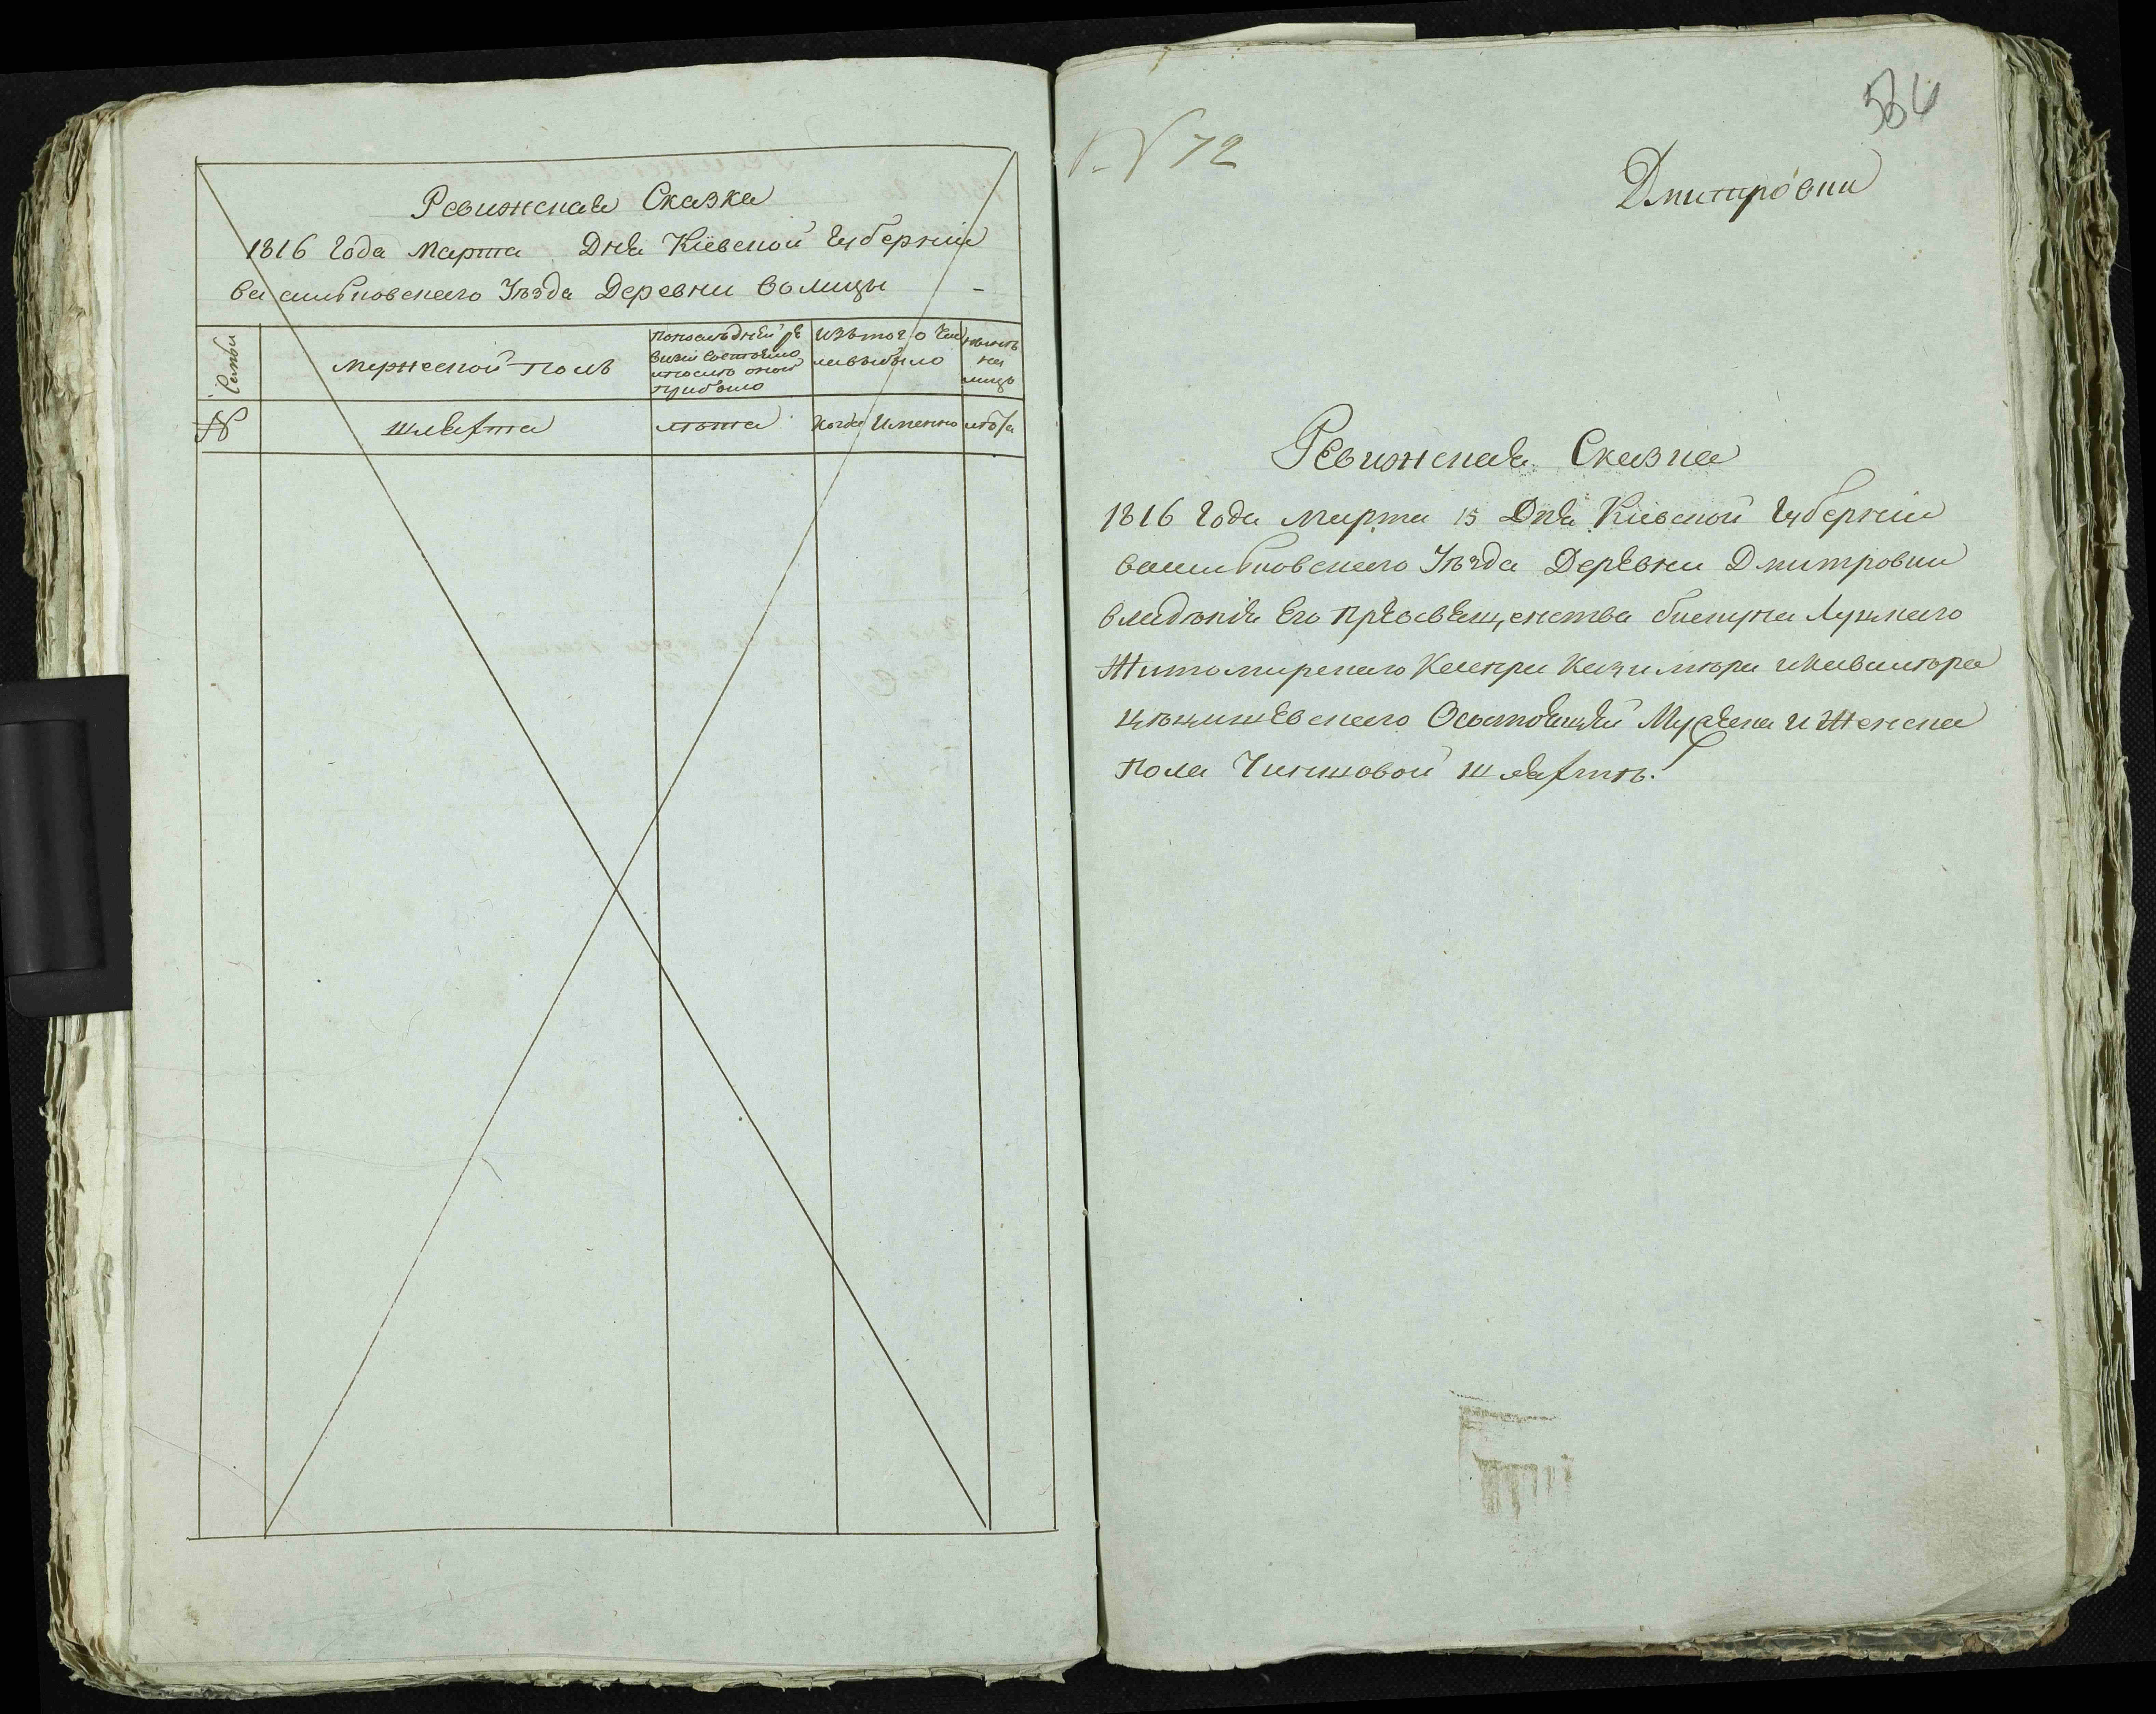 Ревижская Сказка
1816 Года Марта Дня Кіевской Губерніи
Васильковского Уѣзда Деревни Волицы -
Семьи
Мужеской Полъ
По последнѣй ре
визіи состояло
и после оной
прибыло
Изъ того Чи
ла выбыло
нынѣ
на
лицо
№
шляхта
лѣта
когда Именно
лѣта
№ 72
Дмитро́вки
Ревижская Сказка
1816 Года Марта 15 Дня Кіевской Губерніи
Васильковского Уѣзда Деревни Дмитровки
Владѣнія Его Преосвященства бискупа Луцкаго
Житомирскаго Каспра Казимѣра и Кавалѣра
Цѣцишевскаго О состоящей Мужеска и Женска
Пола Чиншовой шляхтѣ.